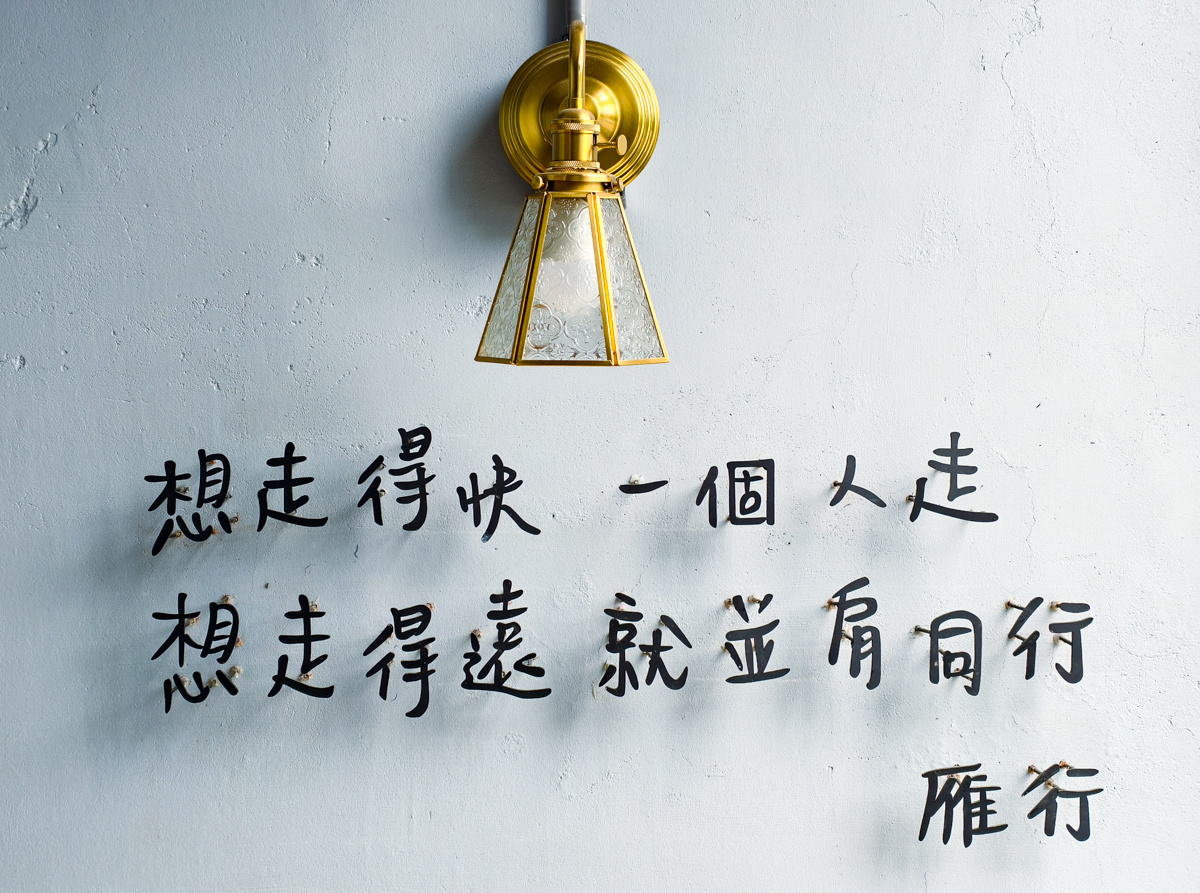 想走得快 一個人走
想走得遠 就並肩同行
雁行